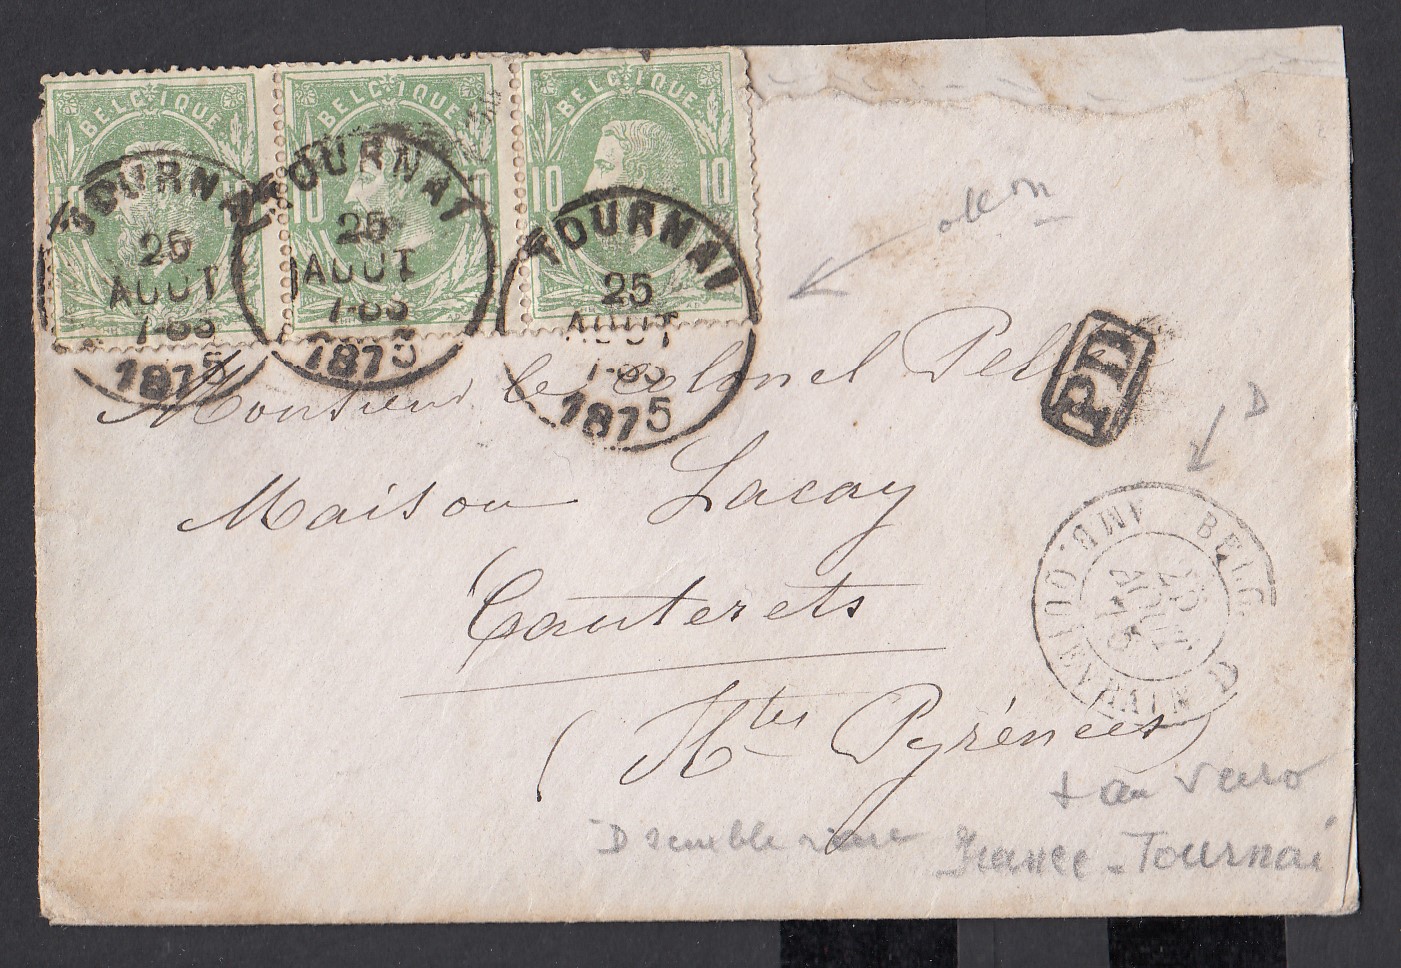 BELGIQUE BELGIQUE BELGIQUE
10 10 10 10 10
TOURNAI TOURNAI TOURNAI
25 25 25
AOUT AOUT AOUT
1875 1875 1875
PD
Monsieur le Colonel
D
Maison Lacay
AMB. QUIEVRAIN D BELG.
AOUT
75
Cauterets
(Htes Pyrénées)
+ au verso
D semble rare France - Tournai